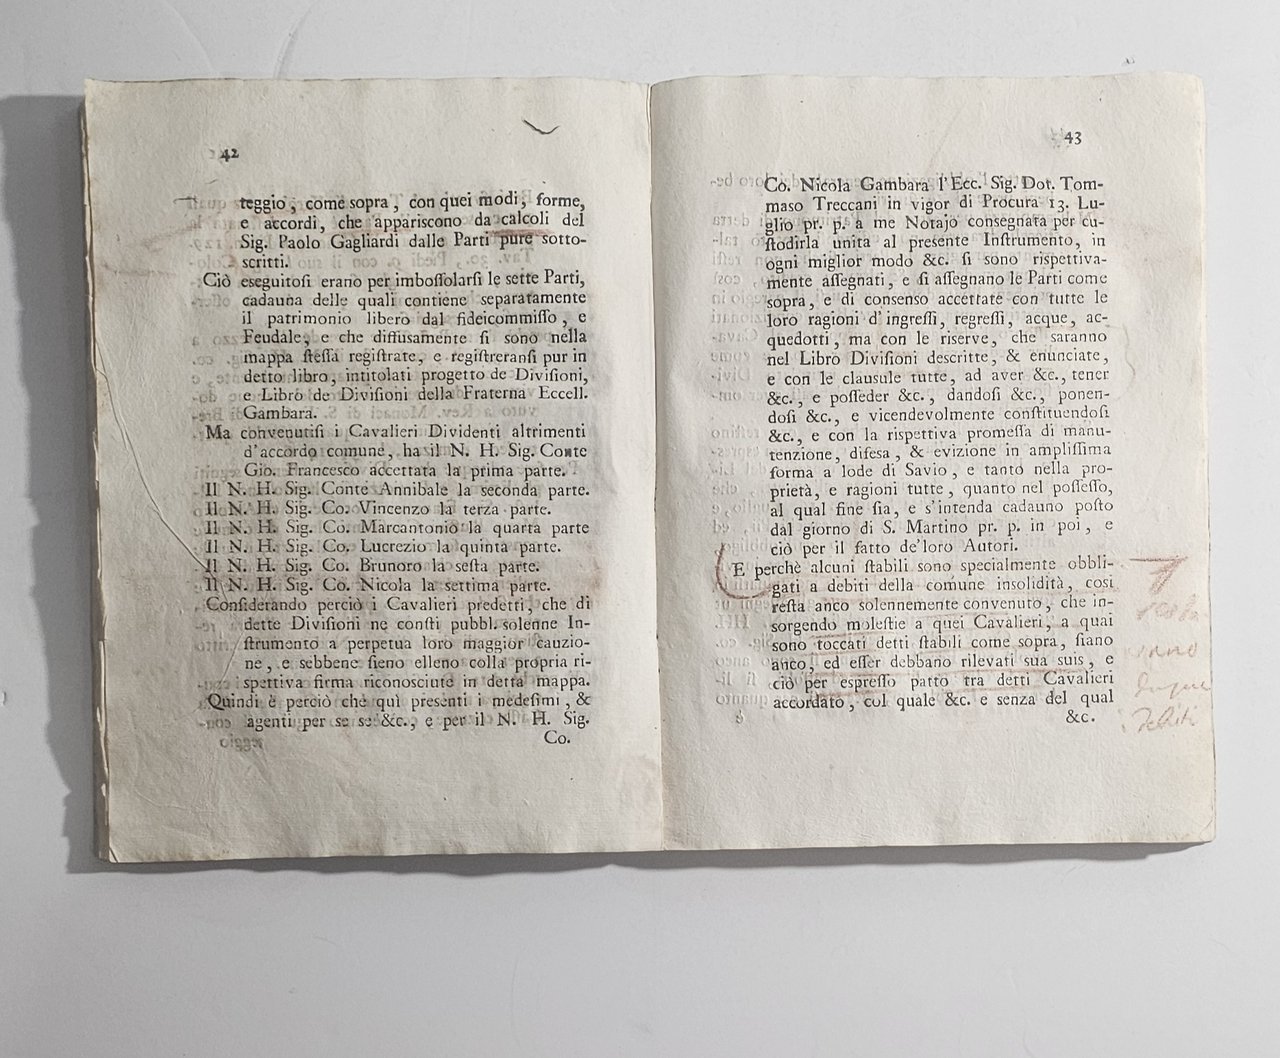 42
teggio, come sopra, con quei modi, forme,
e accordi, che appariscono da calcoli del
Sig. Paolo Gagliardi dalle Parti pure sotto-
scritti.
Ciò eseguitosi erano per imbossolarsi le sette Parti,
cadauna delle quali contiene separatamente
il patrimonio libero dal fideicommisso, e
Feudale, e che diffusamente si sono nella
mappa stessa registrate, e registreransi pur in
detto libro, intitolati progetto de Divisioni,
e Libro de Divisioni della Fraterna Eccell.
Gambara.
Ma convenutisi i Cavalieri Dividenti altrimenti
d'accordo comune, ha il N. H. Sig. Conte
Gio. Francesco accettata la prima parte.
Il N. H. Sig. Conte Annibale la seconda parte.
Il N. H. Sig. Co. Vincenzo la terza parte.
Il N. H. Sig. Co. Marcantonio la quarta parte
Il N. H. Sig. Co. Lucrezio la quinta parte.
Il N. H. Sig. Co. Brunoro la sesta parte.
Il N. H. Sig. Co. Nicola la settima parte.
Considerando perciò i Cavalieri predetti, che di
dette Divisioni ne consti pubbl. solenne In-
strumento a perpetua loro maggior cauzio-
ne, e sebbene sieno elleno colla propria ri-
spettiva firma riconosciute in detta mappa.
Quindi è perciò che quì presenti i medesimi, &
agenti per se se &c., e per il N. H. Sig.
Co.
43
Co. Nicola Gambara l'Ecc. Sig. Dot. Tom-
maso Treccani in vigor di Procura 13. Lu-
glio pr. p. a me Notajo consegnata per cu-
stodirla unita al presente Instrumento, in
ogni miglior modo &c. si sono rispettiva-
mente assegnati, e si assegnano le Parti come
sopra, e di consenso accettate con tutte le
loro ragioni d'ingressi, regressi, acque, ac-
quedotti, ma con le riserve, che saranno
nel Libro Divisioni descritte, & enunciate,
e con le clausule tutte, ad aver &c., tener
&c., e posseder &c., dandosi &c., ponen-
dosi &c., e vicendevolmente constituendosi
&c., e con la rispettiva promessa di manu-
tenzione, difesa, & evizione in amplissima
forma a lode di Savio, e tanto nella pro-
prietà, e ragioni tutte, quanto nel possesso,
al qual fine sia, e s'intenda cadauno posto
dal giorno di S. Martino pr. p. in poi, e
ciò per il fatto de'loro Autori.
E perchè alcuni stabili sono specialmente obbli-
gati a debiti della comune insolidità, così
resta anco solennemente convenuto, che in-
sorgendo molestie a quei Cavalieri, a quai
sono toccati detti stabili come sopra, siano
anco, ed esser debbano rilevati sua suis, e
ciò per espresso patto tra detti Cavalieri
accordato, col quale &c. e senza del qual
&c.